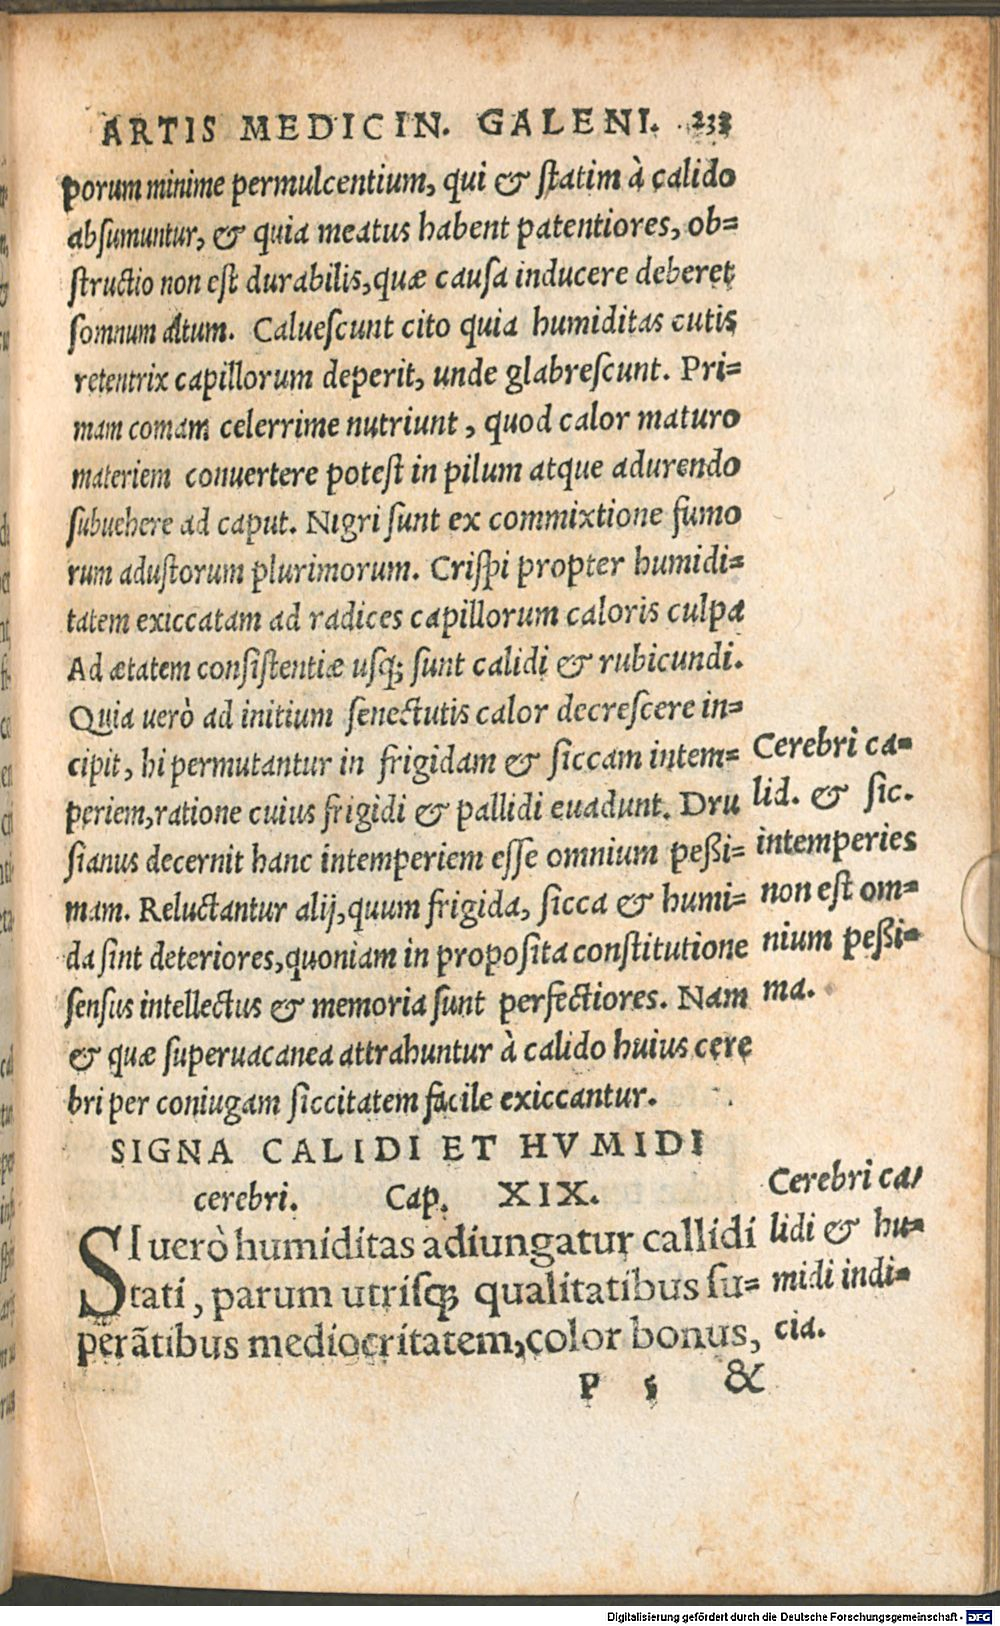 ARTIS MEDICIN. GALENI. 233
porum minime permulcentium, qui & ſtatim à calido
abſumuntur, & quia meatus habent patentiores, ob=
ſtructio non eſt durabilis, quæ cauſa inducere deberet
ſomnum altum. Calueſcunt cito quia humiditas cutis
retentrix capillorum deperit, unde glabreſcunt. Pri=
mam comam celerrime nutriunt, quod calor maturo
materiem conuertere poteſt in pilum atque adurendo
ſubuehere ad caput. Nigri ſunt ex commixtione fumo
rum aduſtorum plurimorum. Criſpi propter humidi=
tatem exiccatam ad radices capillorum caloris culpa
Ad ætatem conſiſtentiæ uſq; ſunt calidi & rubicundi.
Quia uerò ad initium ſenectutis calor decreſcere in=
cipit, hi permutantur in frigidam & ſiccam intem=
periem, ratione cuius frigidi & pallidi euadunt. Dru
ſianus decernit hanc intemperiem eſſe omnium peßi=
mam. Reluctantur alij, quum frigida, ſicca & humi=
da ſint deteriores, quoniam in propoſita conſtitutione
ſenſus intellectus & memoria ſunt perfectiores. Nam
& quæ ſuperuacanea attrahuntur à calido huius cere
bri per coniugam ſiccitatem facile exiccantur.
Cerebri ca=
lid. & ſic.
intemperies
non eſt om=
nium peßi=
ma.
SIGNA CALIDI ET HVMIDI
cerebri. Cap. XIX.
SI uerò humiditas adiungatur callidi
tati, parum utriſq; qualitatibus ſu=
perãtibus mediocritatem, color bonus,
Cerebri ca/
lidi & hu=
midi indi=
cia.
P 5 &
Digitalisierung gefördert durch die Deutsche Forschungsgemeinschaft - DFG